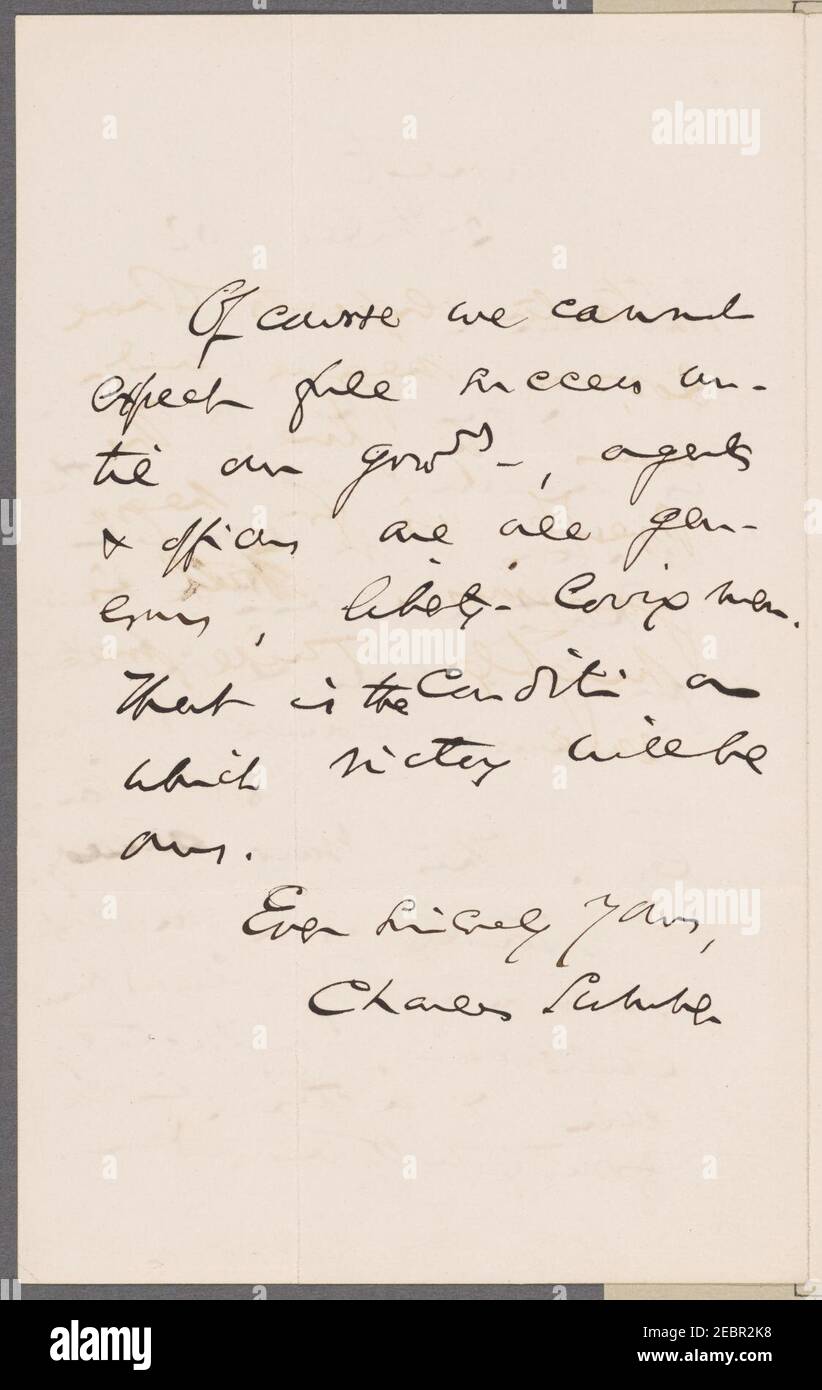 Of course we cannot
expect full success un-
til our gov's, agents
& officers are all gen-
erous, liberty-loving men.
That is the condition on
which victory will be
ours.
Ever sincerely Yours,
Charles Sumner
alamy
Image ID: 2EBR2K8
www.alamy.com